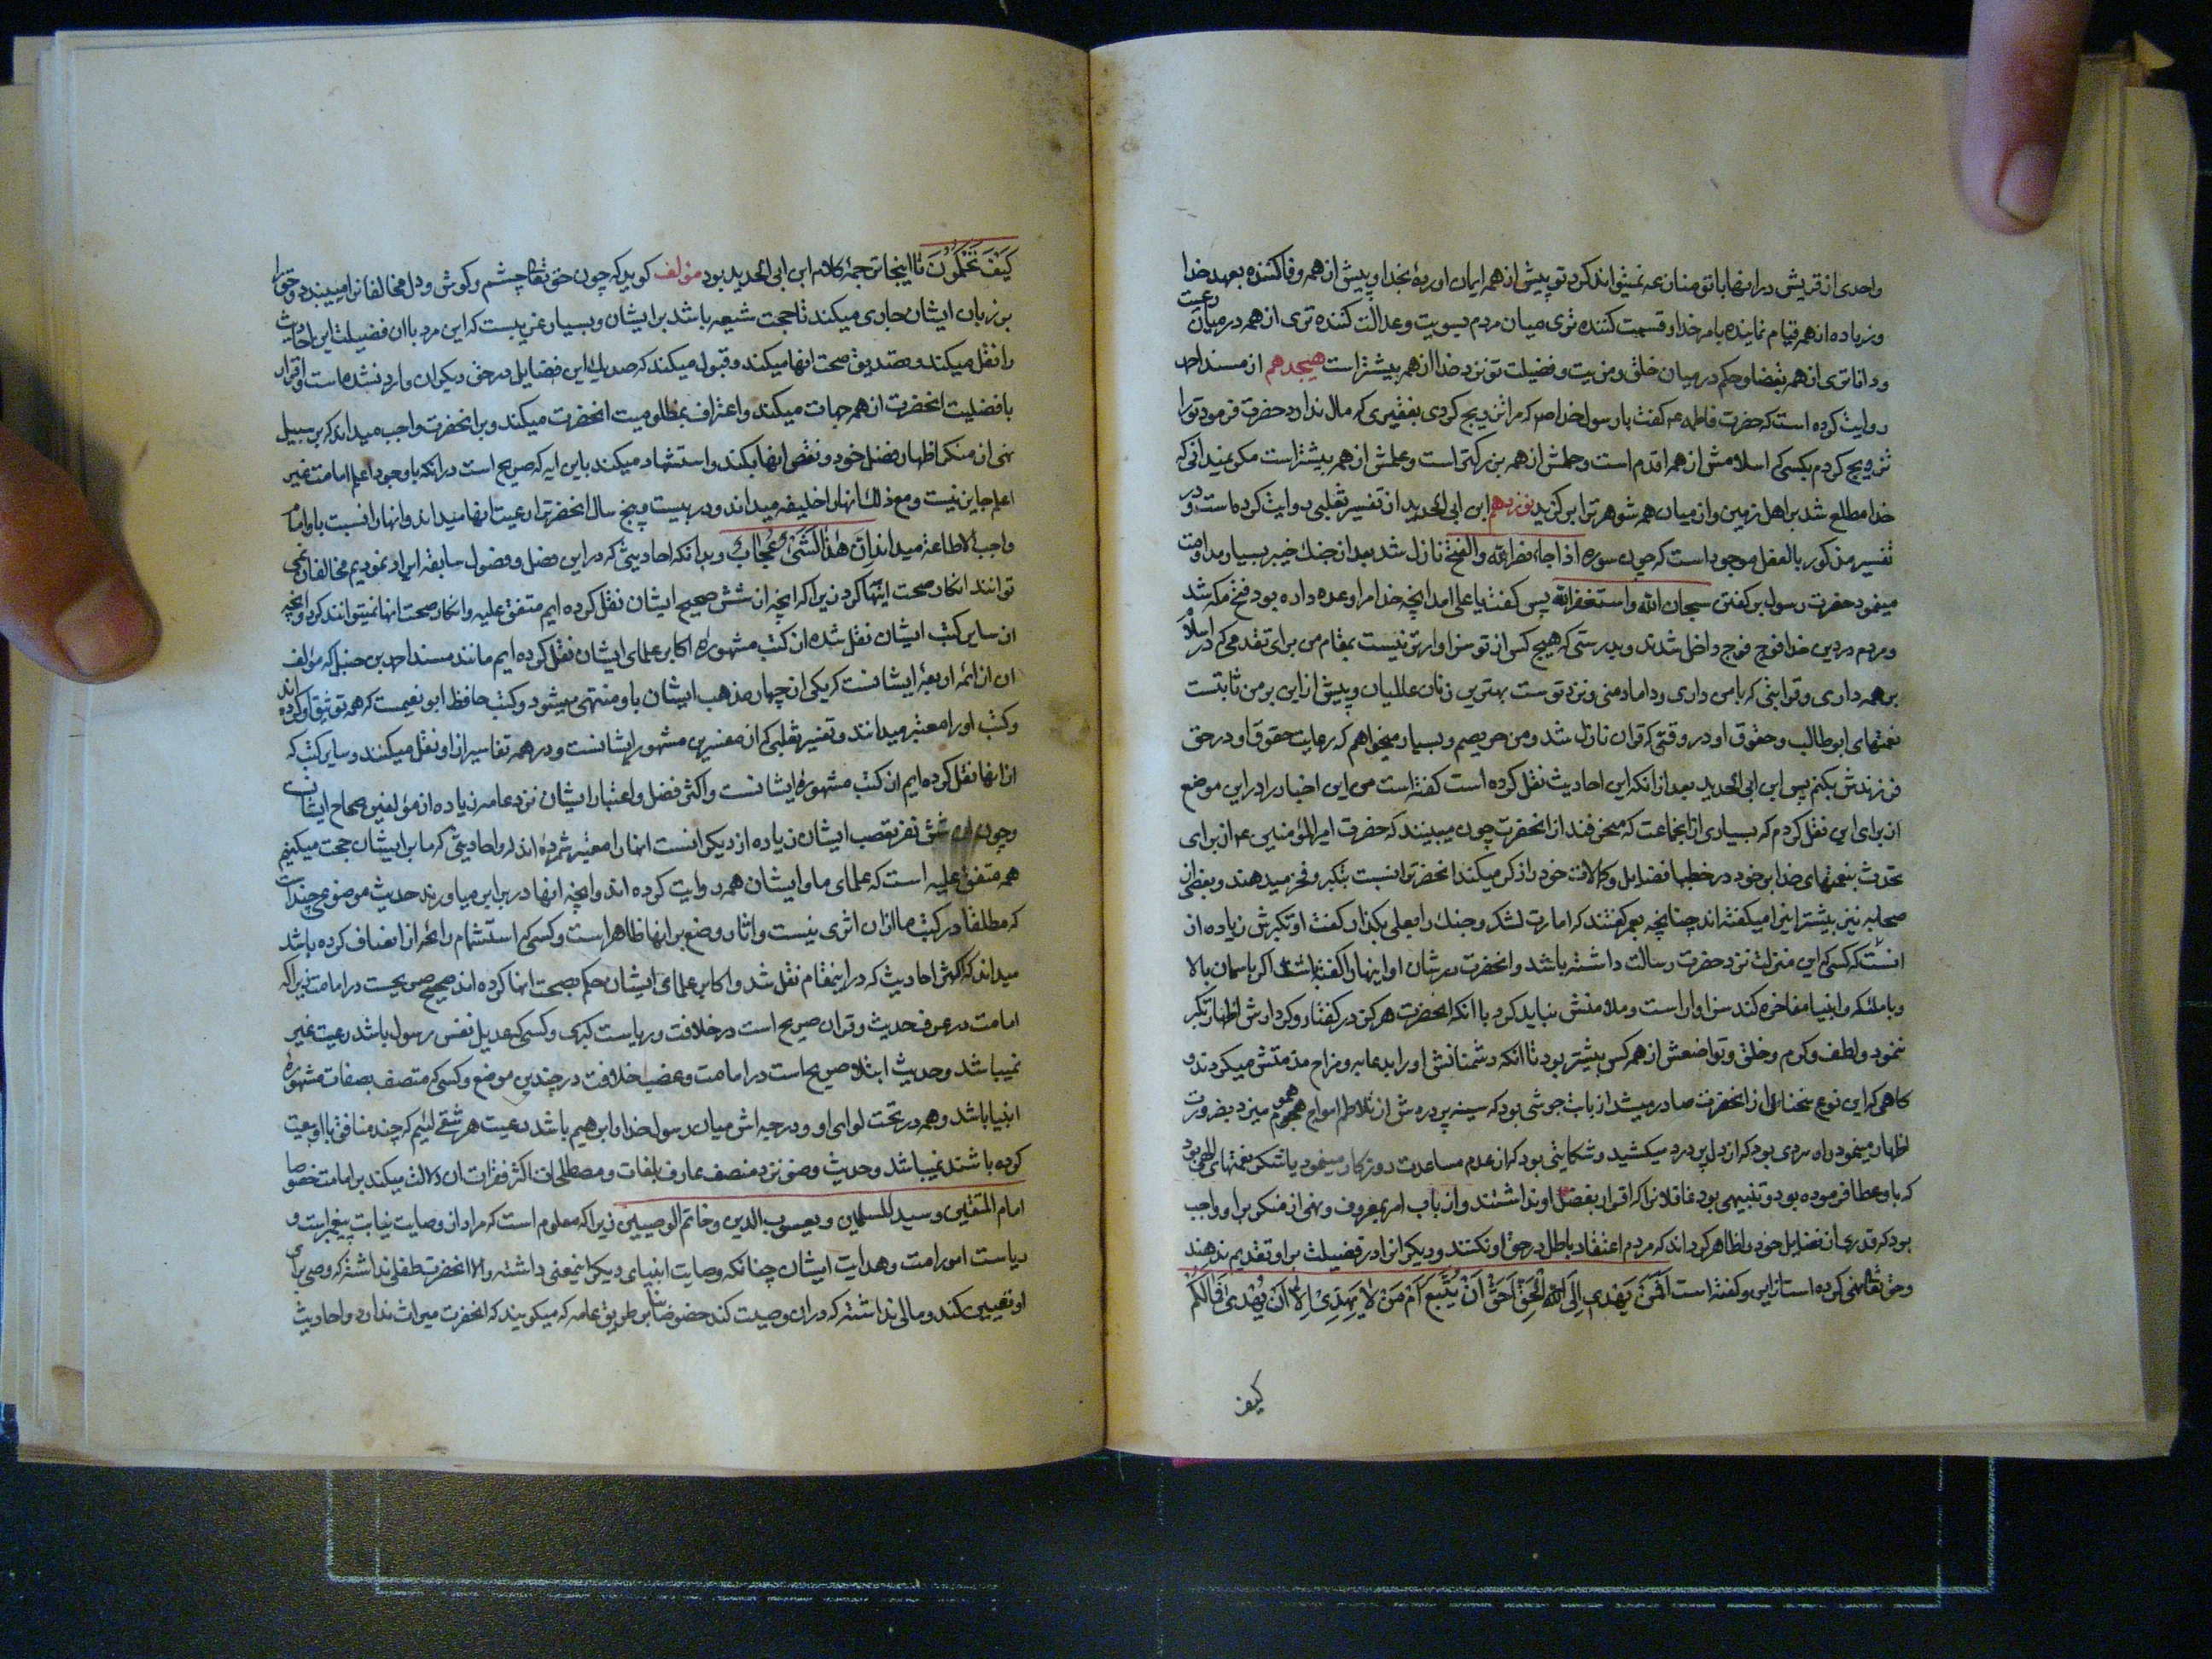 واحدی از قریش در اینها با تو منازعه نمیتواند کرد تو پیش از همه ایمان اورده بخدا و پیش از همه وفا کننده بعهد خدا
و زیاده از همه قیام نماینده بامر خدا و قسمت کننده تری میان مردم بسویت و عدالت کننده تری از همه در میان رعیت
و داناتری از همه بقضا و حکم در میان خلق و مزیت و فضیلت تو نزد خدا از همه بیشتر است هیجدهم از مسند احمد
روایت کرده است که حضرت فاطمه ع گفت با رسول خدا ص که مرا تزویج کردی بفقیری که مال ندارد حضرت فرمود ترا
تزویج کردم بکسی که اسلامش از همه اقدم است و حلمش از همه بزرکتر است و علمش از همه بیشتر است مکر نمیدانی که
خدا مطلع شد بر اهل زمین و از میان همه شوهر ترا برکزید نوزدهم ابن ابی الحدید از تفسیر ثعلبی روایت کرده است و در
تفسیر مذکور بالفعل موجود است که چون سوره اذا جاء نصر الله والفتح نازل شد بعد از جنک خیبر بسیار مداومت
مینمود حضرت رسول بر کفتن سبحان الله و استغفر الله پس گفت یا علی امد انچه خدا مرا وعده داده بود فتح مکه شد
و مردم در دین خدا فوج فوج داخل شدند و بدرستی که هیچ کس از تو سزاوارتر نیست بمقام من برای تقدمی که در اسلام
بر همه داری و قرابتی که با من داری و داماد منی و نزد توست بهترین زنان عالمیان و پیش از این بر من ثابتست
نعمتهای ابو طالب و حقوق او در وقتی که قران نازل شد و من حریصم و بسیار میخواهم که رعایت حقوق او در حق
فرزندش بکنم پس ابن ابی الحدید بعد از انکه این احادیث نقل کرده است کفته است من این اخبار را در این موضع
از برای این نقل کردم که بسیاری از انجماعت که منحرفند از انحضرت چون میبینند که حضرت امیر المؤمنین ع از برای
تحدث بنعمتهای خدا بر خود در خطبها فضایل و کمالات خود را ذکر میکند انحضرت را نسبت بتکبر و فخر میدهند و بعضی از
صحابه نیز بیشتر اینرا میکفته‌اند چنانچه بعمر کفتند که امارت لشکر و جنک را بعلی بکذار کفت او تکبرش زیاده از
انست که کسی که این منزلت نزد حضرت رسالت داشته باشد و انحضرت در شان او اینها را کفته باشد اکر باسمان بالا
و با ملئکه و انبیا مفاخره کند سزاوار است و ملامتش نباید کرد با انکه انحضرت هرکز در کفتار و کردارش اظهار تکبر
ننمود و لطف و کرم و خلق و تواضعش از همه کس بیشتر بود تا انکه دشمنانش او را بدعابه و مزاح مذمتش میکردند و
کاهی که این نوع سخنان از انحضرت صادر میشد از باب جوشی بود که سینه پر دردش از تلاطم امواج هموم میزد بضرورت
اظهار مینمود و اه سردی بود که از دل پر درد میکشید و شکایتی بود که از عدم مساعدت روزکار مینمود یا شکر نعمتهای الهی بود
که باو عطا فرموده بود و تنبیهی بود غافلانرا که اقرار بفضل او نداشتند و از باب امر بمعروف و نهی از منکر بر او واجب
بود که قدری از فضایل خود را ظاهر کرداند که مردم اعتقاد باطل در حق او نکنند و دیکرانرا در فضیلت بر او تقدیم ندهند
و حق تعالی نهی کرده است از این و کفته است أَفَمَنْ يَهْدِي إِلَى الْحَقِّ أَحَقُّ أَنْ يُتَّبَعَ أَمَّنْ لَا يَهِدِّي إِلَّا أَنْ يُهْدَى فَمَا لَكُمْ
کیف
كَيْفَ تَحْكُمُونَ تا اینجا ترجمهٔ کلام ابن ابی الحدید بود مؤلف کوید که چون حق تعالی چشم و کوش و دل مخالفانرا میبندد و حق را
بر زبان ایشان جاری میکند تا حجت شیعه باشد بر ایشان و بسیار غریبست که این مرد با ان فضیلت این احادیث
را نقل میکند و تصدیق صحت انها میکند و قبول میکند که صد یک این فضایل در حق دیکران وارد نشده است و اقرار
بافضلیت انحضرت از همه جهات میکند و اعتراف بمظلومیت انحضرت میکند و بر انحضرت واجب میداند که بر سبیل
نهی از منکر اظهار فضل خود و نقص انها بکند و استشهاد میکند باین ایه که صریح است در انکه با وجود اعلم امامت غیر
اعلم جایز نیست و مع ذلک انها را خلیفه میداند و در بیست و پنج سال انحضرت را رعیت انها میداند و انها را نسبت باو امام
واجب الاطاعة میداند إِنَّ هَذَا لَشَيْءٌ عُجَابٌ و بدانکه احادیثی که در این فضل و فصول سابقه ایراد نمودیم مخالفان نمی
توانند انکار صحت اینها کرد زیرا که انچه از شش صحیح ایشان نقل کرده ایم متفق علیه و انکار صحت انها نمیتوانند کرد و انچه
از سایر کتب ایشان نقل شده از کتب مشهوره اکابر علمای ایشان نقل کرده ایم مانند مسند احمد بن حنبل که مؤلف
ان از ائمه اربعهٔ ایشانست که یکی از چهار مذهب ایشان باو منتهی میشود و کتب حافظ ابو نعیمست که همه توثیق او کرده اند
و کتب او را معتبر میدانند و تفسیر ثعلبی که از مفسرین مشهور ایشانست و در همه تفاسیر از او نقل میکنند و سایر کتب که
از انها نقل کرده ایم از کتب مشهورهٔ ایشانست و اکثر فضل و اعتبار ایشان نزد عامه زیاده از مؤلفین صحاح ایشانست
و چون این شش نفر تعصب ایشان زیاده از دیکرانست انها را معتبر شمرده اند و احادیثی که ما بر ایشان حجت میکنیم
همه متفق علیه است که علمای ما و ایشان همه روایت کرده اند و انچه انها در برابر میاورند حدیث موضوعی چند است
که مطلقا در کتب ما از ان اثری نیست و اثار وضع بر انها ظاهر است و کسی که استشمام رایحه از انصاف کرده باشد
میداند که اکثر احادیث که در اینمقام نقل شد و اکابر علمای ایشان حکم بصحت انها کرده اند صحیح صریحست در امامت زیرا که
امامت در عرف حدیث و قران صریح است در خلافت و ریاست کبری و کسی که عدیل نفس رسول باشد رعیت غیر
نمیباشد و حدیث ابتلا صریحاست در امامت و غصب خلافت در چندین موضع و کسی که متصف بصفات مشهوره
انبیا باشد و همه در تحت لوای او و درجه اش میان رسول خدا و ابراهیم باشد رعیت هر شقی لئیم که چند منافق با او بیعت
کرده باشند نمیباشد و حدیث وضو نزد منصف عارف بلغات و مصطلحات اکثر فقرات ان دلالت میکند بر امامت خصوصا
امام المتقین و سید المسلمین و یعسوب الدین و خاتم الوصیین زیرا که معلوم است که مراد از وصایت نیابت پیغمبر است و
ریاست امور امت و هدایت ایشان چنانکه وصایت انبیای دیکر اینمعنی داشته و الا انحضرت طفلی نداشت که وصی برای
او تعیین کند و مالی نداشته که در ان وصیت کند خصوصا بر طریق عامه که میکویند که انحضرت میراث ندارد و احادیث